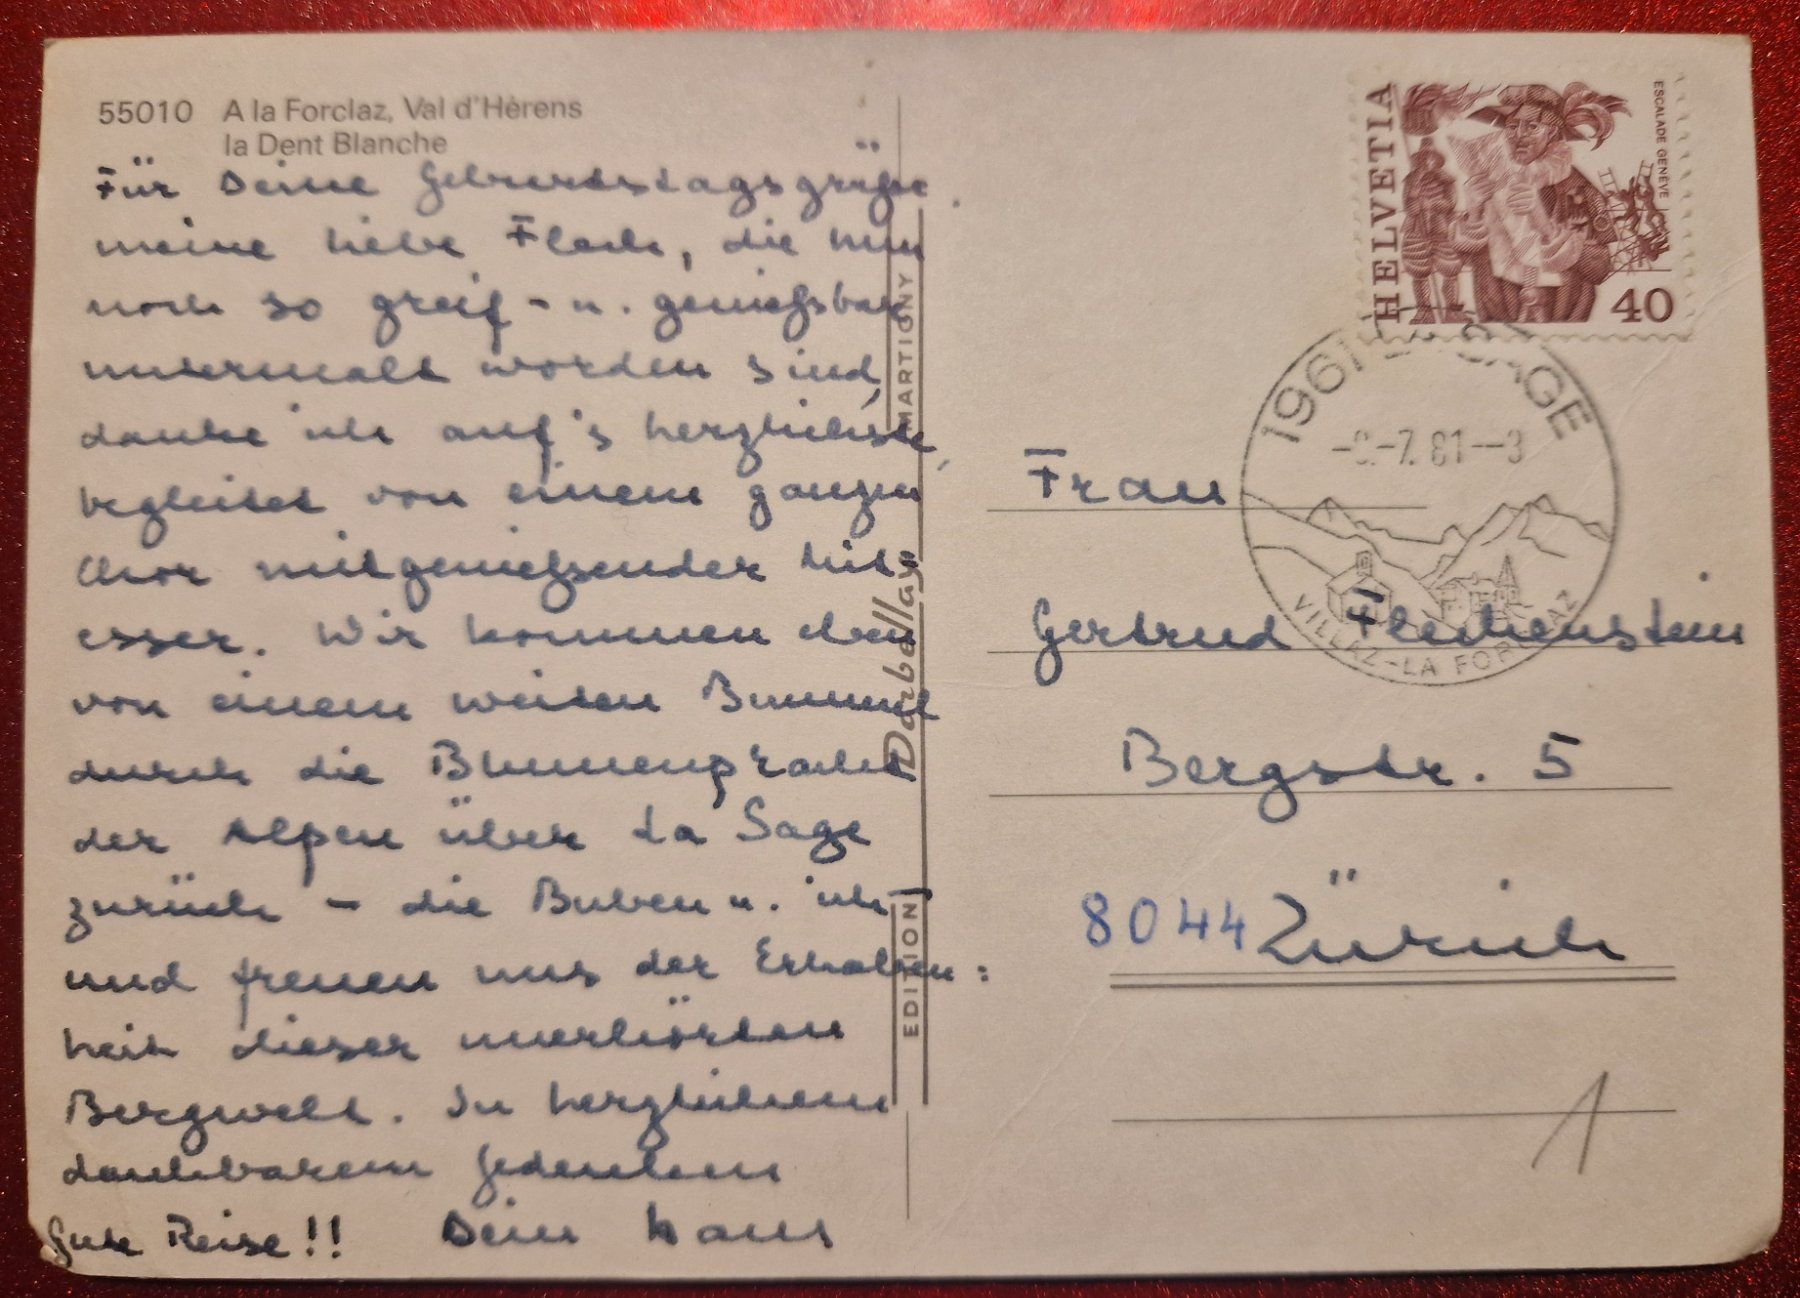 55010 A la Forclaz, Val d'Hérens
la Dent Blanche
Für Deine Geburtstagsgrüße
meine liebe Fleck, die nun
noch so greif- u. genießbar
untermalt worden sind,
danke ich auf's herzlichste,
begleitet von einem ganzen
Chor mitgenießender Mit-
esser. Wir kommen eben
von einem weiten Bummel
durch die Blumenpracht
der Alpen über La Sage
zurück – die Buben u. ich
und freuen uns der Erhaben=
heit dieser unerhörten
Bergwelt. In herzlichem
dankbarem Gedenken
Gute Reise!! Dein Hans
EDITION Darbellay MARTIGNY
HELVETIA
ESCALADE GENÈVE
40
1961 LA SAGE
-7.81--8
VILLAZ-LA FORCLAZ
Frau
Gertrud Fleckenstein
Bergstr. 5
8044 Zürich
1